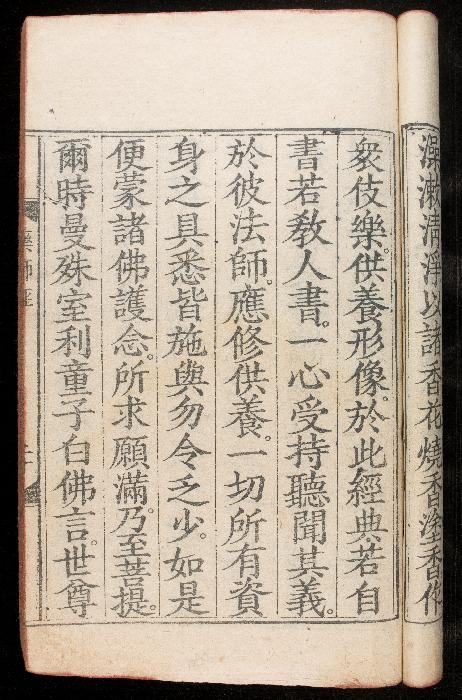 澡漱清淨以諸香花燒香塗香作
衆伎樂。供養形像。於此經典。若自
書若教人書。一心受持聽聞其義。
於彼法師。應修供養。一切所有資
身之具悉皆施與勿令乏少。如是
便蒙諸佛護念。所求願滿。乃至菩提。
爾時曼殊室利童子白佛言。世尊
藥師經